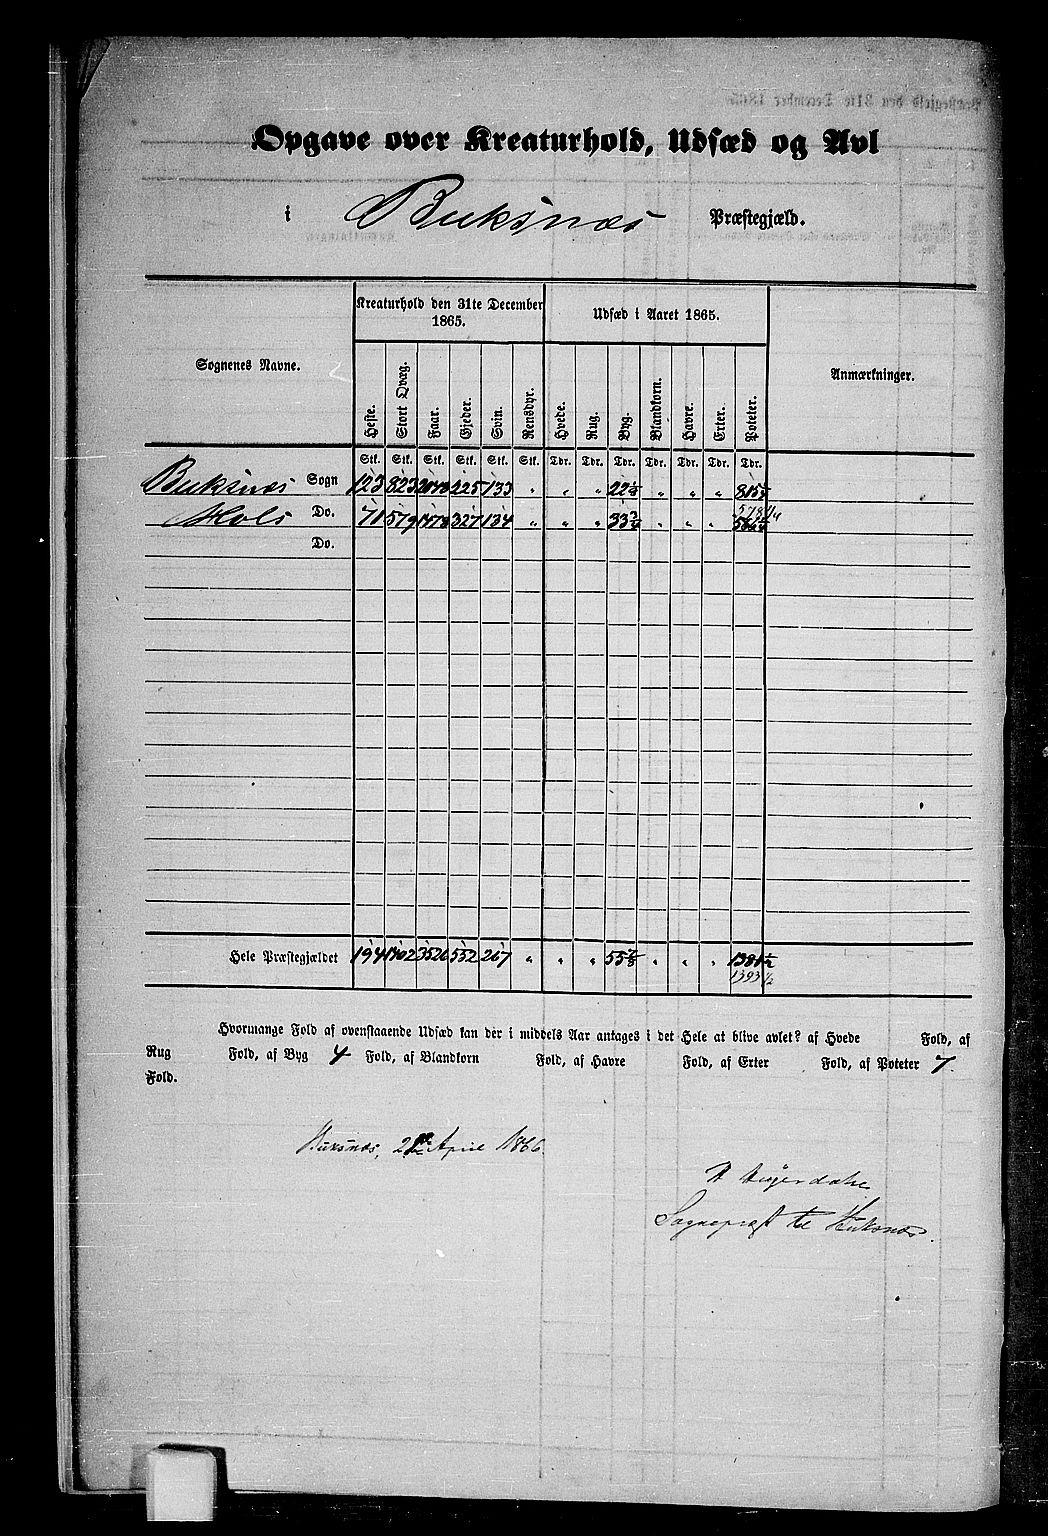 Opgave over Kreaturhold, Udsæd og Avl
i Buksnæs Præstegjæld.
Sognenes Navne. Kreaturhold den 31te December 1865. Udsæd i Aaret 1865. Anmærkninger.
Heste. Stort Qvæg. Faar. Gjeder. Svin. Rensdyr. Hvede. Rug. Byg. Blandkorn. Havre. Erter. Poteter.
Stk. Stk. Stk. Stk. Stk. Stk. Tdr. Tdr. Tdr. Tdr. Tdr. Tdr. Tdr.
Buksnæs Sogn 123 823 2048 225 133 " " " 22 1/8 " " " 815
Hols Do. 71 579 1478 327 134 " " " 33 3/4 " " " 578 1/4
Do.
Hele Præstegjældet 194 1402 3526 552 267 " " " 55 7/8 " " " 1381 1/2
1393 1/2
Hvormange Fold af ovenstaaende Udsæd kan der i middels Aar antages i det Hele at blive avlet? af Hvede Fold, af
Rug Fold, af Byg 4 Fold, af Blandkorn Fold, af Havre Fold, af Erter Fold, af Poteter 7
Fold.
Buksnæs, April 1866.
Sognepræst til Buksnæs.